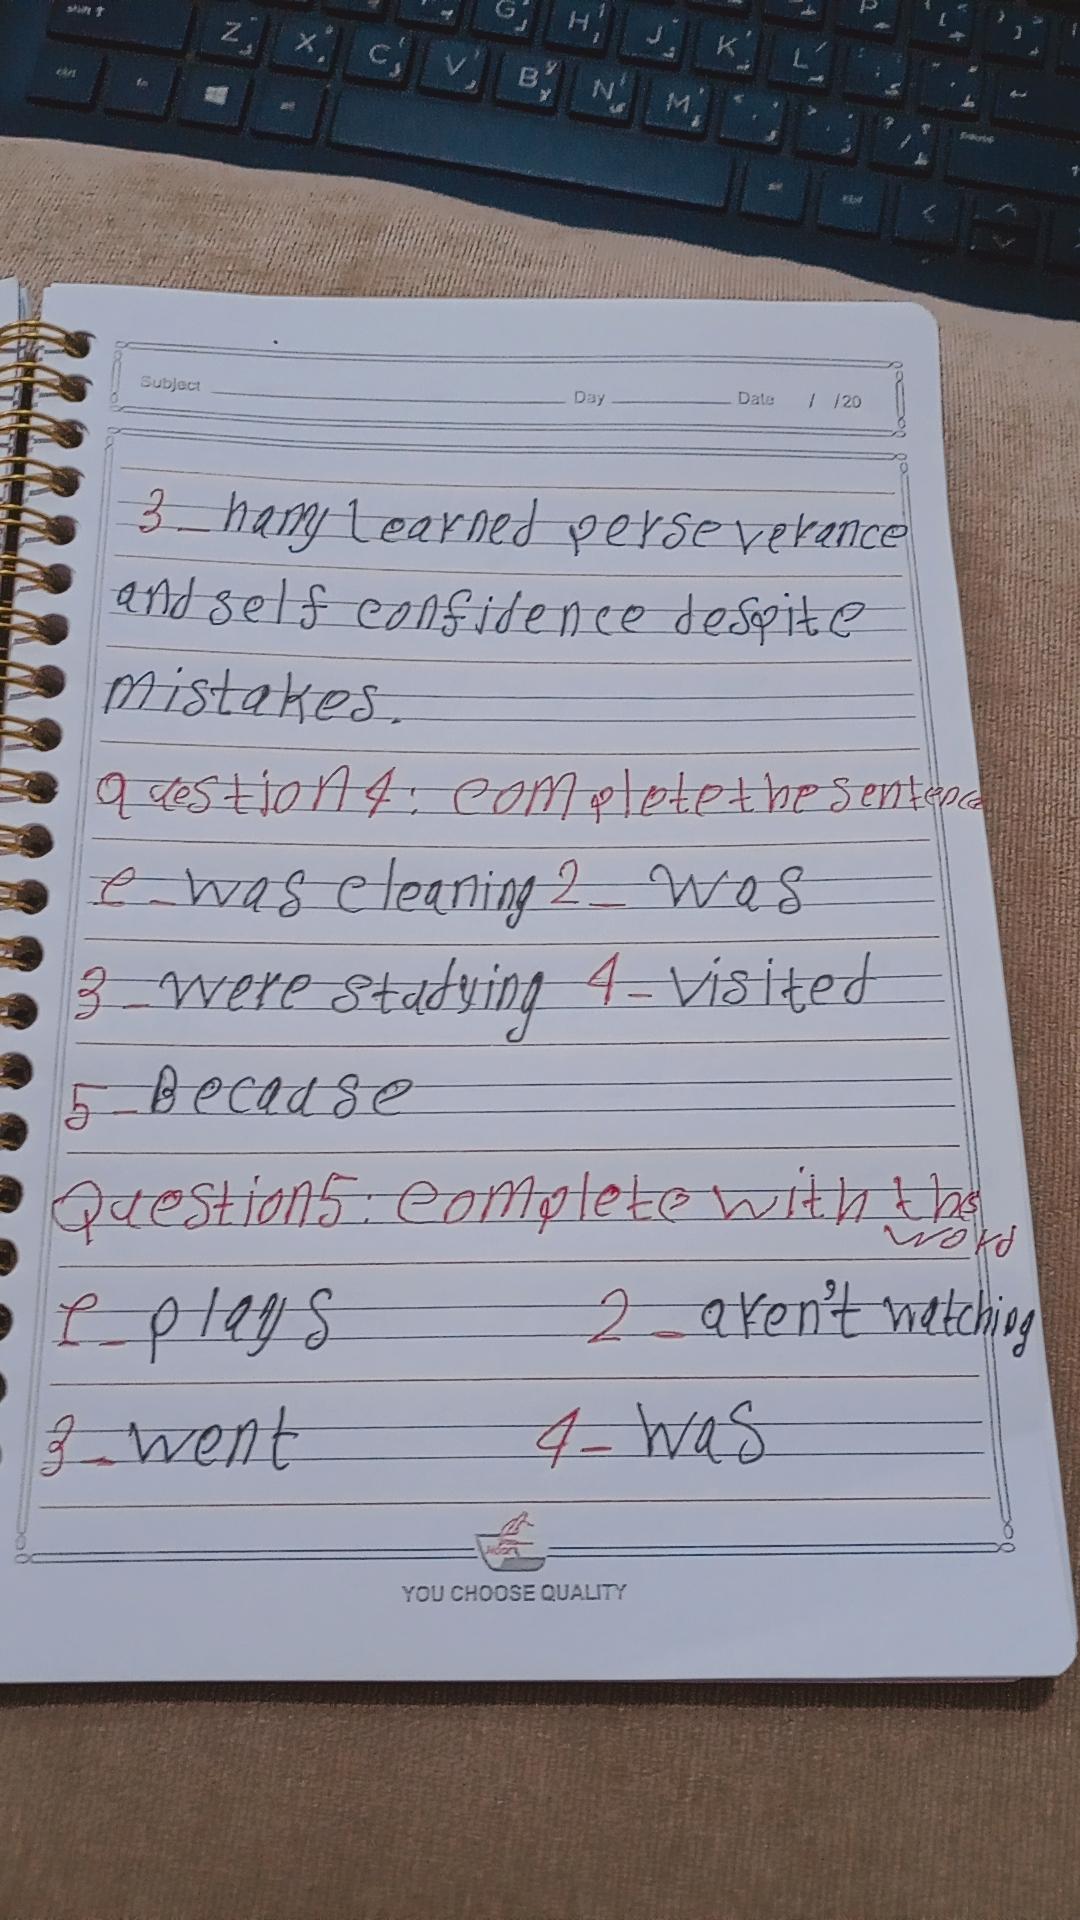 G H J K L
Z X C V B N M
Subject Day Date / /20
3_ hany learned perseverance
and self confidence despite
mistakes.
question 4: complete the sentence
1_ was cleaning 2_ was
3_ were studying 4_ visited
5_ Because
Question 5: complete with the
word
1_ plays 2_ aren't watching
3_ went 4_ was
YOU CHOOSE QUALITY